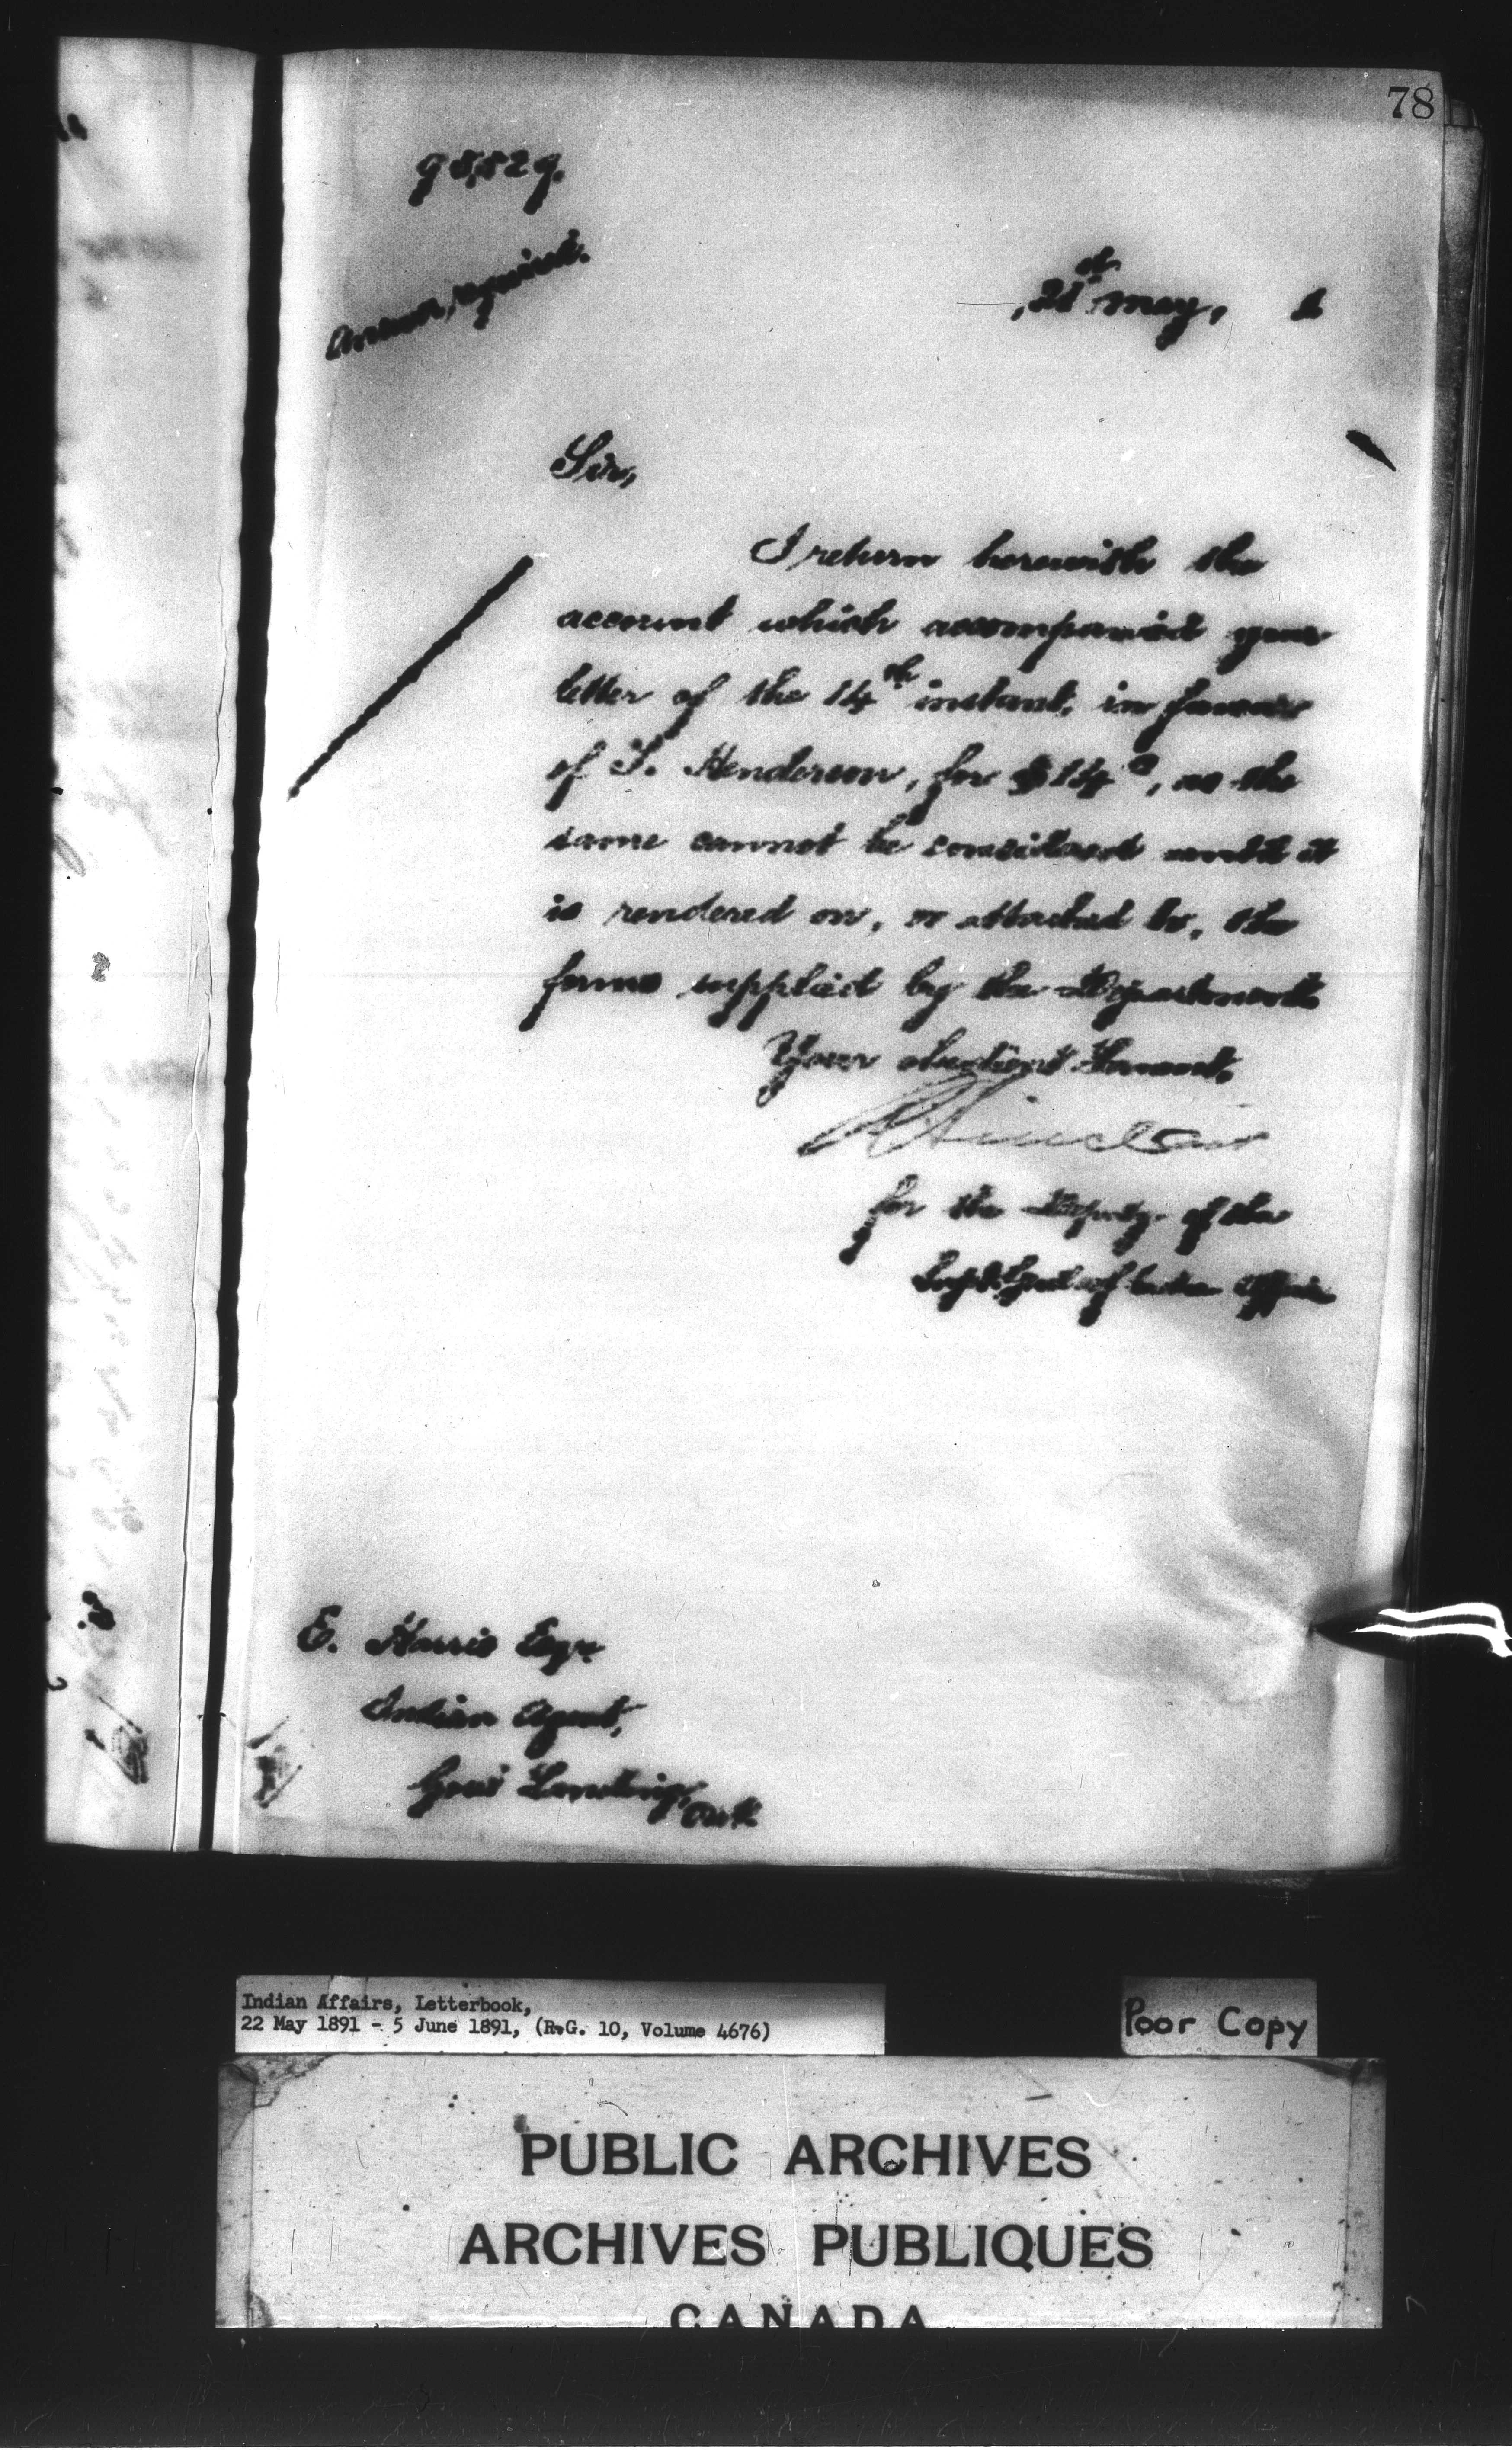 78
98,829.
Answer, required.
21st May, 1
Sir,
I return herewith the
account which accompanied your
letter of the 14th instant, in favour
of Henderson, for $14, as the
same cannot be considered until it
is rendered on, or attached to, the
forms supplied by the Department
Your obedient Servant,
Sinclair
for the Deputy of the
Supt. Genl. of Indian Affairs
E. Harris Esqr.
Indian Agent,
Gores Landing, Ont.
Indian Affairs, Letterbook,
22 May 1891 - 5 June 1891, (R.G. 10, Volume 4676)
Poor Copy
PUBLIC ARCHIVES
ARCHIVES PUBLIQUES
CANADA